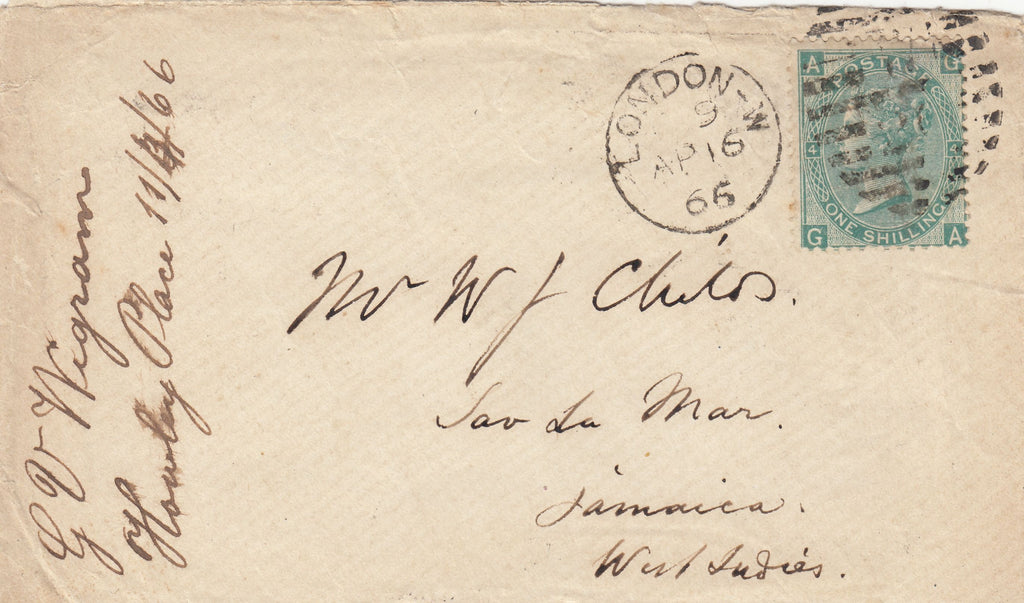 LONDON-W
9
AP 16
66
A G
POSTAGE
4 4
ONE SHILLING
G A
Mr W J Childs.
Sav La Mar.
Jamaica.
West Indies.
G V Wigram
Howley Place 11/4/66